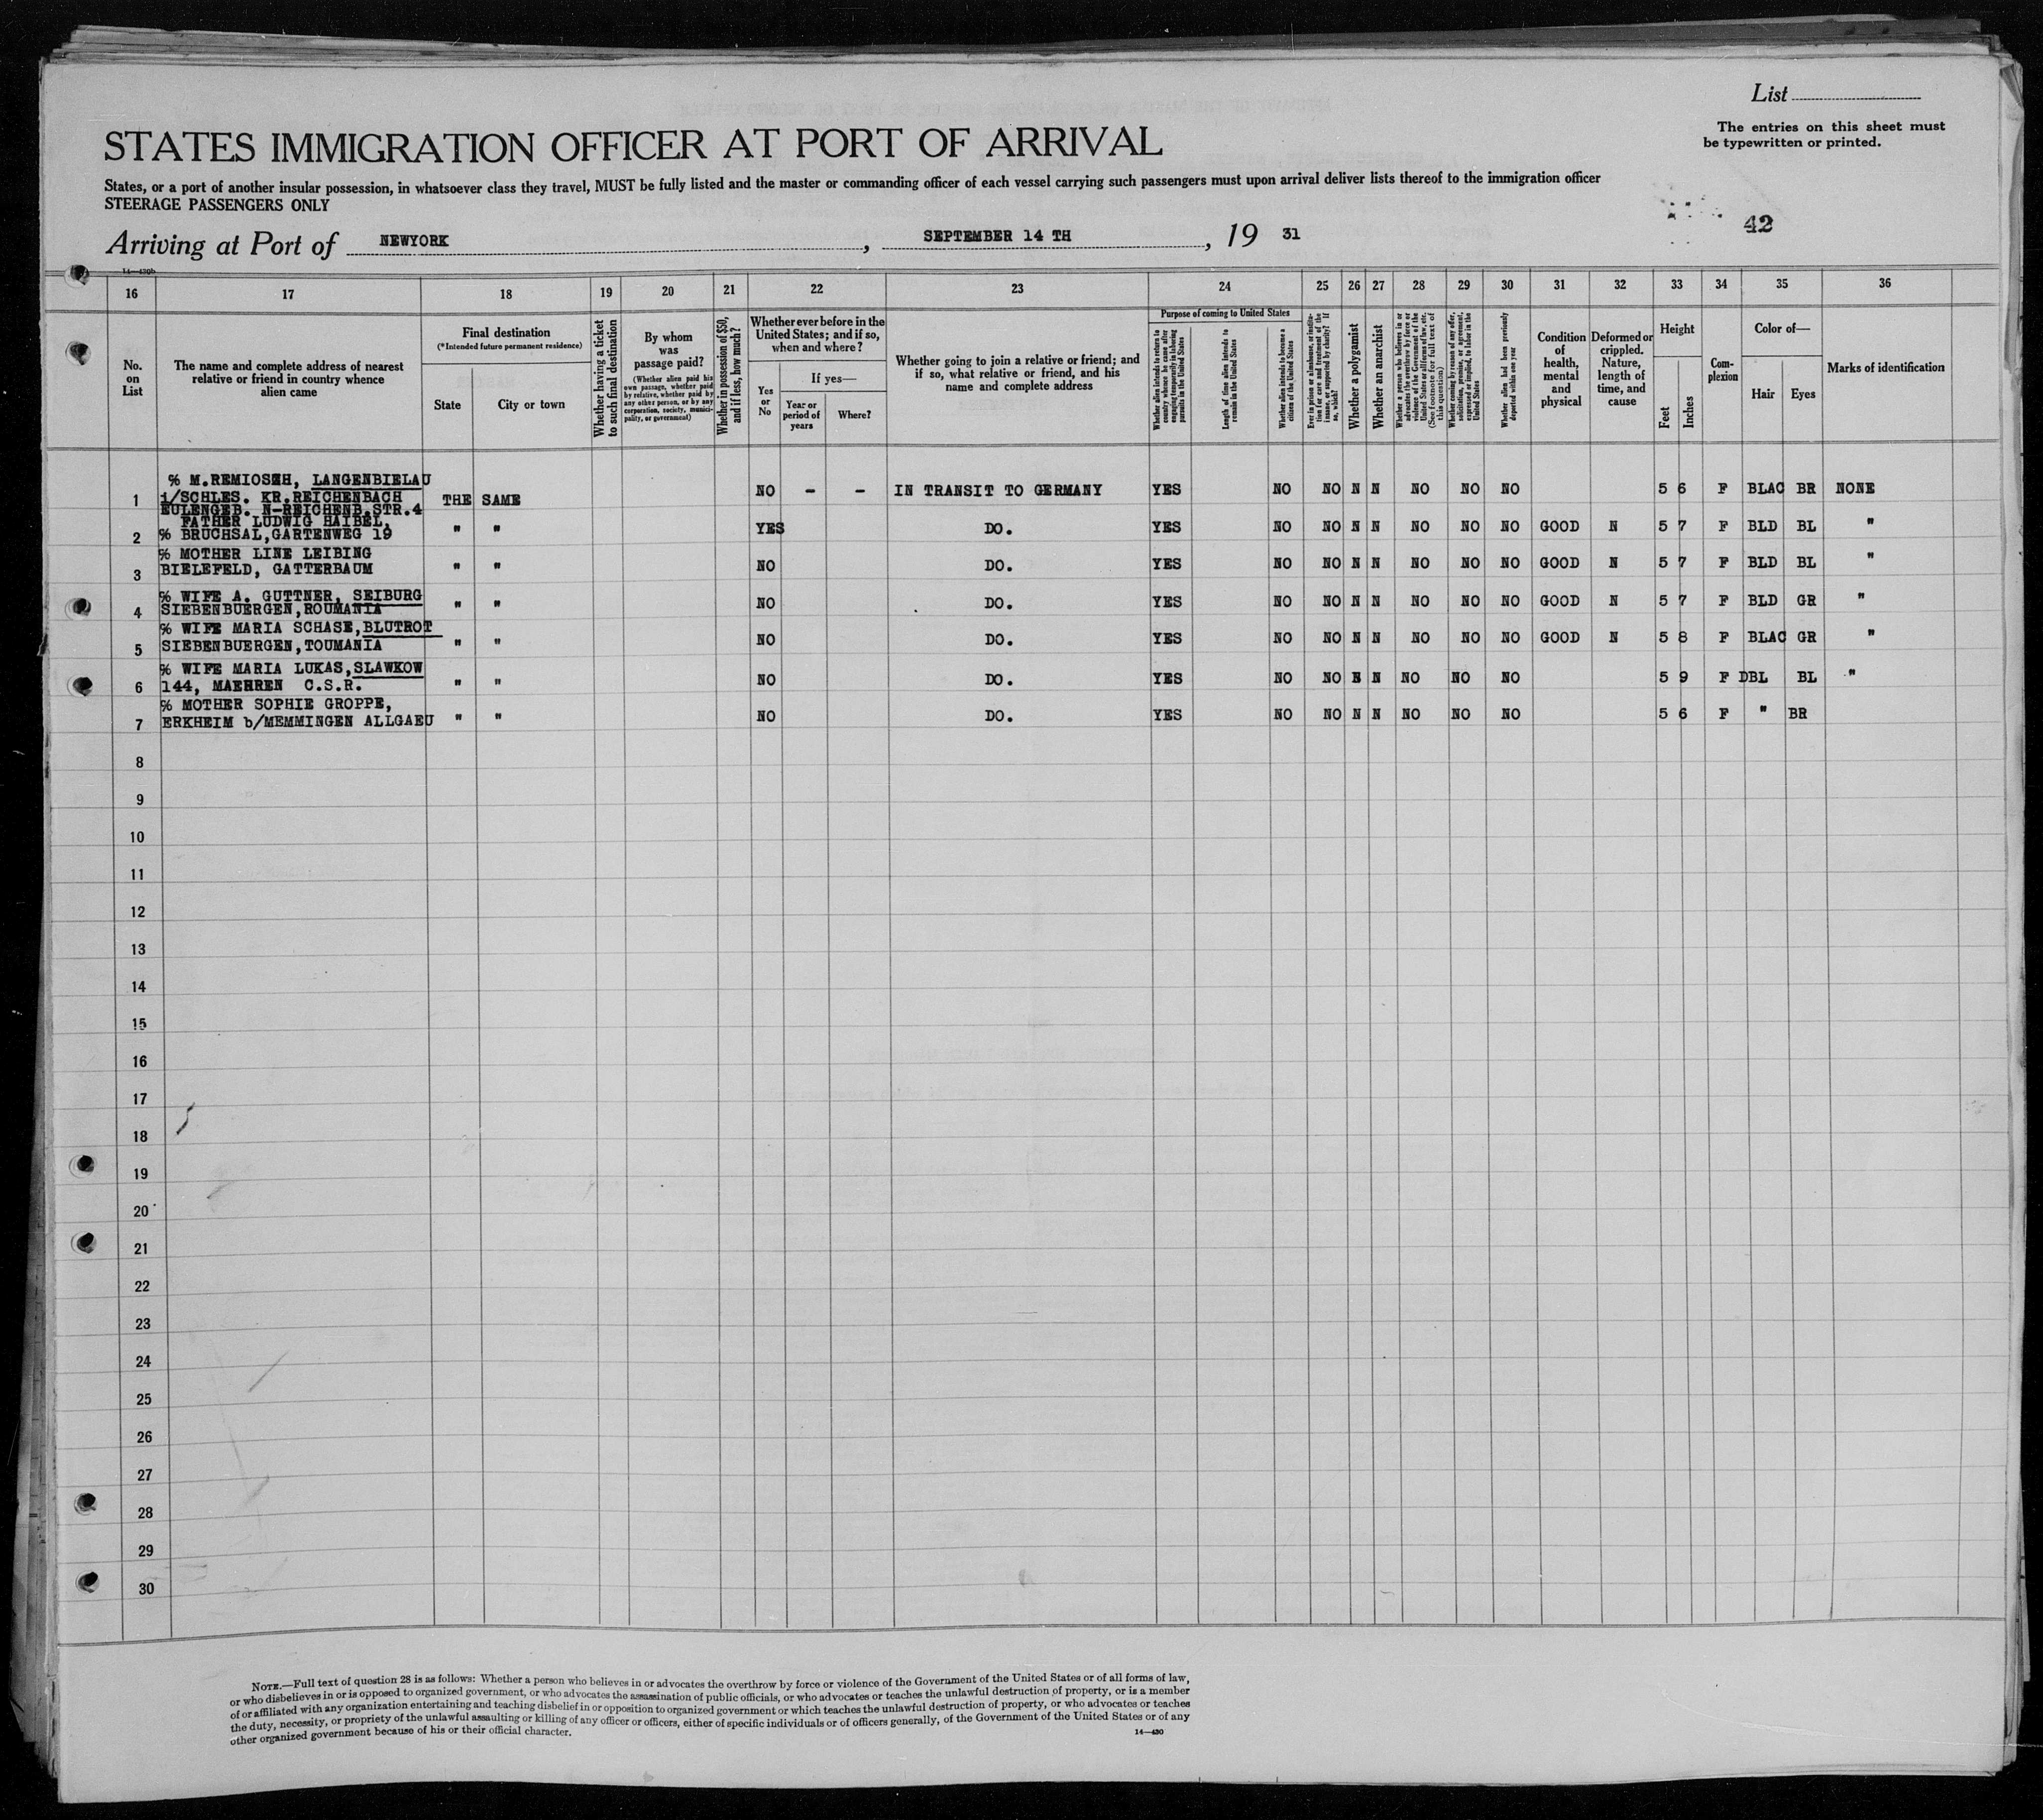 List
The entries on this sheet must
be typewritten or printed.
STATES IMMIGRATION OFFICER AT PORT OF ARRIVAL
States, or a port of another insular possession, in whatsoever class they travel, MUST be fully listed and the master or commanding officer of each vessel carrying such passengers must upon arrival deliver lists thereof to the immigration officer
STEERAGE PASSENGERS ONLY
42
Arriving at Port of NEWYORK , SEPTEMBER 14 TH , 19 31
14—430b
16 17 18 19 20 21 22 23 24 25 26 27 28 29 30 31 32 33 34 35 36
No.
on
List
The name and complete address of nearest
relative or friend in country whence
alien came
Final destination
(*Intended future permanent residence)
State
City or town
Whether having a ticket
to such final destination
By whom
was
passage paid?
(Whether alien paid his
own passage, whether paid
by relative, whether paid by
any other person, or by any
corporation, society, munici-
pality, or government)
Whether in possession of $50,
and if less, how much?
Whether ever before in the
United States; and if so,
when and where?
Yes
or
No
If yes—
Year or
period of
years
Where?
Whether going to join a relative or friend; and
if so, what relative or friend, and his
name and complete address
Purpose of coming to United States
Whether alien intends to return to
country whence he came after
engaging temporarily in laboring
pursuits in the United States
Length of time alien intends to
remain in the United States
Whether alien intends to become a
citizen of the United States
Ever in prison or almshouse, or institu-
tion for care and treatment of the
insane, or supported by charity? If
so, which?
Whether a polygamist
Whether an anarchist
Whether a person who believes in or
advocates the overthrow by force or
violence of the Government of the
United States or all forms of law, etc.
(See footnote for full text of
this question)
Whether coming by reason of any offer,
solicitation, promise, or agreement,
expressed or implied, to labor in the
United States
Whether alien had been previously
deported within one year
Condition
of
health,
mental
and
physical
Deformed or
crippled.
Nature,
length of
time, and
cause
Height
Feet
Inches
Com-
plexion
Color of—
Hair
Eyes
Marks of identification
% M.REMIOSZH, LANGENBIELAU
1 i/SCHLES. KR.REICHENBACH THE SAME NO - - IN TRANSIT TO GERMANY YES NO NO N N NO NO NO 5 6 F BLAC BR NONE
EULENGEB. N-REICHENB.STR.4
FATHER LUDWIG HAIBEL,
2 % BRUCHSAL,GARTENWEG 19 " " YES DO. YES NO NO N N NO NO NO GOOD N 5 7 F BLD BL "
% MOTHER LINE LEIBING
3 BIELEFELD, GATTERBAUM " " NO DO. YES NO NO N N NO NO NO GOOD N 5 7 F BLD BL "
% WIFE A. GUTTNER, SEIBURG
4 SIEBENBUERGEN,ROUMANIA " " NO DO. YES NO NO N N NO NO NO GOOD N 5 7 F BLD GR "
% WIFE MARIA SCHASE,BLUTROT
5 SIEBENBUERGEN,TOUMANIA " " NO DO. YES NO NO N N NO NO NO GOOD N 5 8 F BLAC GR "
% WIFE MARIA LUKAS,SLAWKOW
6 144, MAEHREN C.S.R. " " NO DO. YES NO NO N N NO NO NO 5 9 F DBL BL "
% MOTHER SOPHIE GROPPE,
7 ERKHEIM b/MEMMINGEN ALLGAEU " " NO DO. YES NO NO N N NO NO NO 5 6 F " BR
8
9
10
11
12
13
14
15
16
17
18
19
20
21
22
23
24
25
26
27
28
29
30
NOTE.—Full text of question 28 is as follows: Whether a person who believes in or advocates the overthrow by force or violence of the Government of the United States or of all forms of law,
or who disbelieves in or is opposed to organized government, or who advocates the assassination of public officials, or who advocates or teaches the unlawful destruction of property, or is a member
of or affiliated with any organization entertaining and teaching disbelief in or opposition to organized government or which teaches the unlawful destruction of property, or who advocates or teaches
the duty, necessity, or propriety of the unlawful assaulting or killing of any officer or officers, either of specific individuals or of officers generally, of the Government of the United States or of any
other organized government because of his or their official character.
14—430